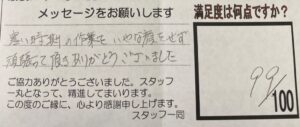 メッセージをお願いします
寒い時期の作業をいやな顔をせず
頑張って頂きありがとうございました
ご協力ありがとうございました。スタッフ
一丸となって、精進してまいります。
この度のご縁に、心より感謝申し上げます。
スタッフ一同
満足度は何点ですか?
99
/100